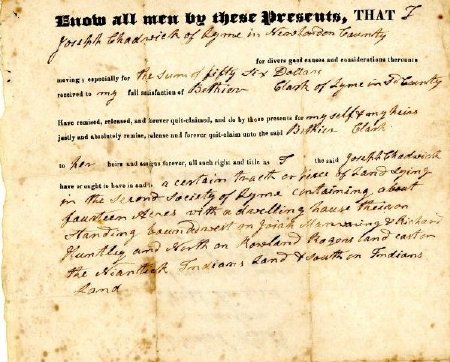 Know all men by these Presents, THAT I
Joseph Chadwick of Lyme in Newlondon County
for divers good causes and considerations thereunto
moving; especially for the sum of fifty Six Dollars
received to my full satisfaction of Bethier Clark of Lyme in Sd County
Have remised, released, and forever quit-claimed, and do by these presents for my self & my heirs
justly and absolutely remise, release and forever quit-claim unto the said Bethier Clark
to her heirs and assigns forever, all such right and title as I the said Joseph Chadwick
have or ought to have in and to a certain tract or piece of Land Lying
in the Second Society of Lyme containing about
fourteen Acres with a dwelling house theron
Standing bounds west on Josiah Manwaring & Richard
Huntley and North on Rowland Rogers land east on
the Neantick Indians Land & South on Indians
Land